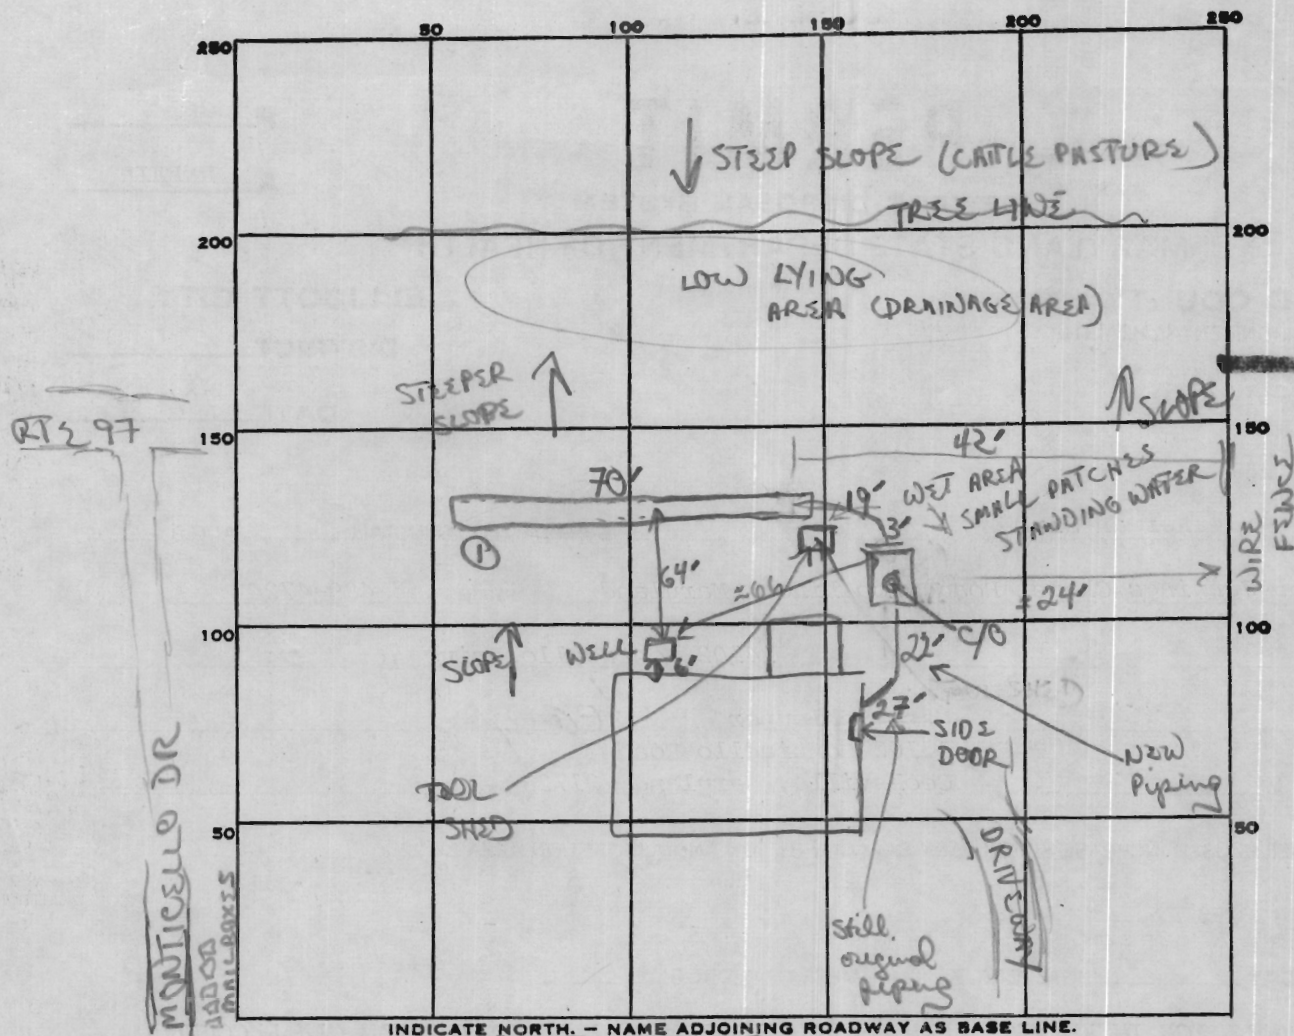 50 100 150 200 250
250
STEEP SLOPE (CATTLE PASTURE)
TREE LINE
200 200
LOW LYING
AREA (DRAINAGE AREA)
STEEPER
SLOPE
SLOPE
RTE 97
150 150
42'
70'
19'
WET AREA
SMALL PATCHES
STANDING WATER
3'
WIRE
FENCE
64'
≈66
± 24'
100 100
SLOPE
WELL
6'
22'
C/O
27'
SIDE
DOOR
NEW
Piping
TOOL
SHED
50 50
MONTICELLO DR
MAILBOXES
DRIVEWAY
Still
original
piping
INDICATE NORTH. — NAME ADJOINING ROADWAY AS BASE LINE.